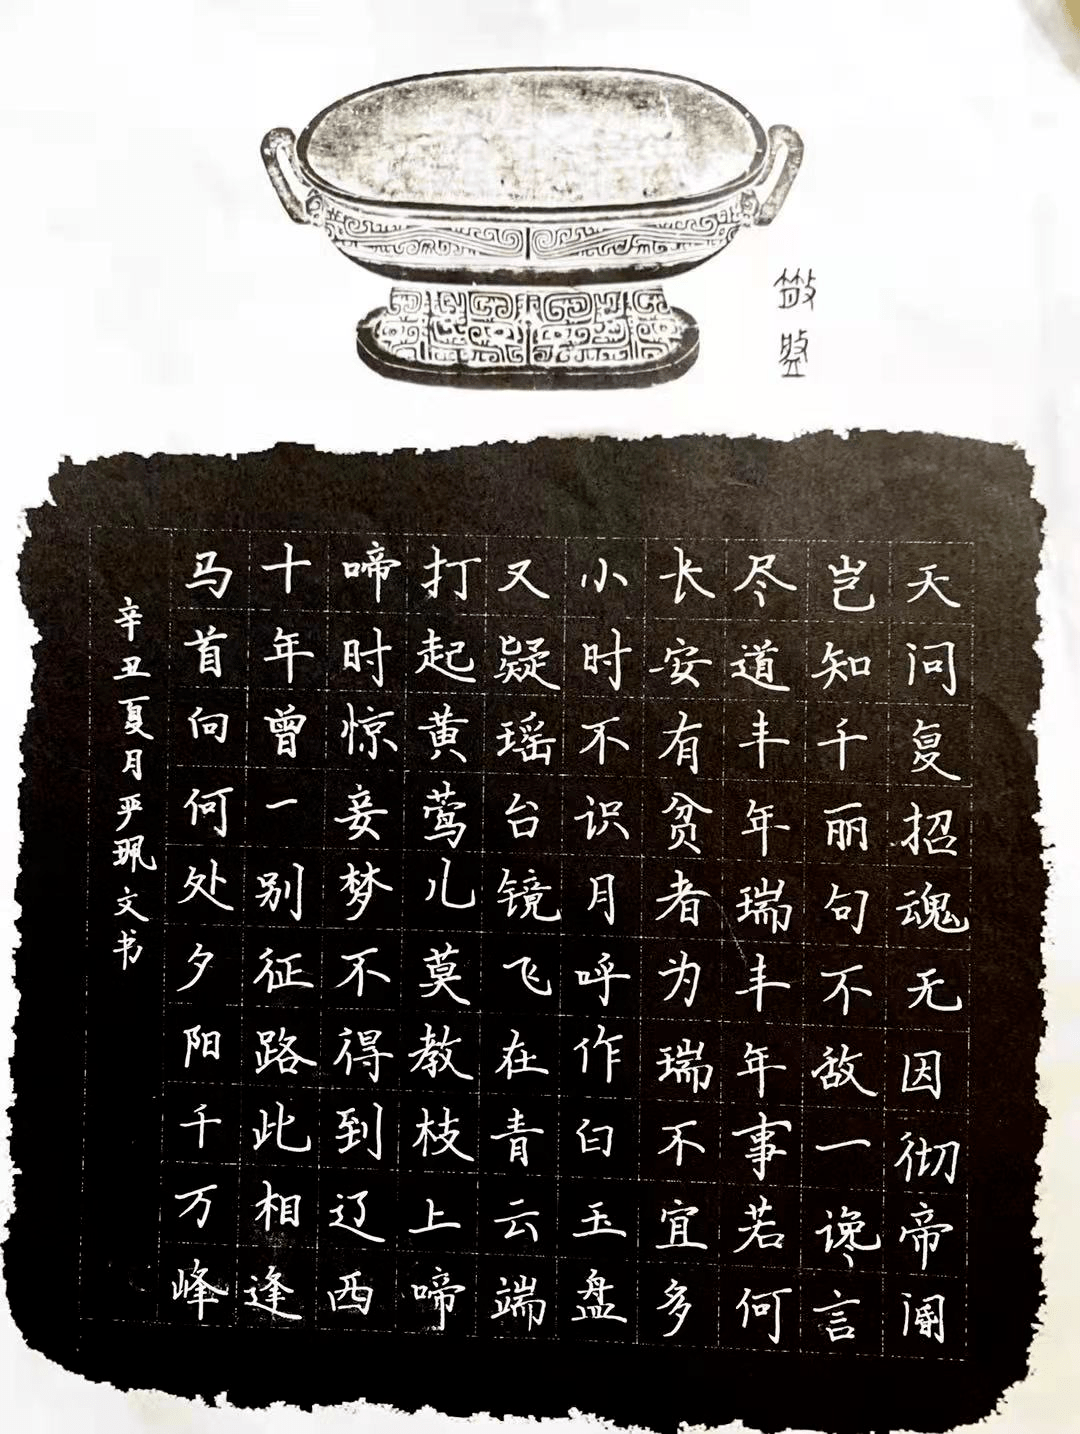 天问复招魂无因彻帝阍
岂知千丽句不敌一谗言
尽道丰年瑞丰年事若何
长安有贫者为瑞不宜多
小时不识月呼作白玉盘
又疑瑶台镜飞在青云端
打起黄莺儿莫教枝上啼
啼时惊妾梦不得到辽西
十年曾一别征路此相逢
马首向何处夕阳千万峰
辛丑夏月严珮文书